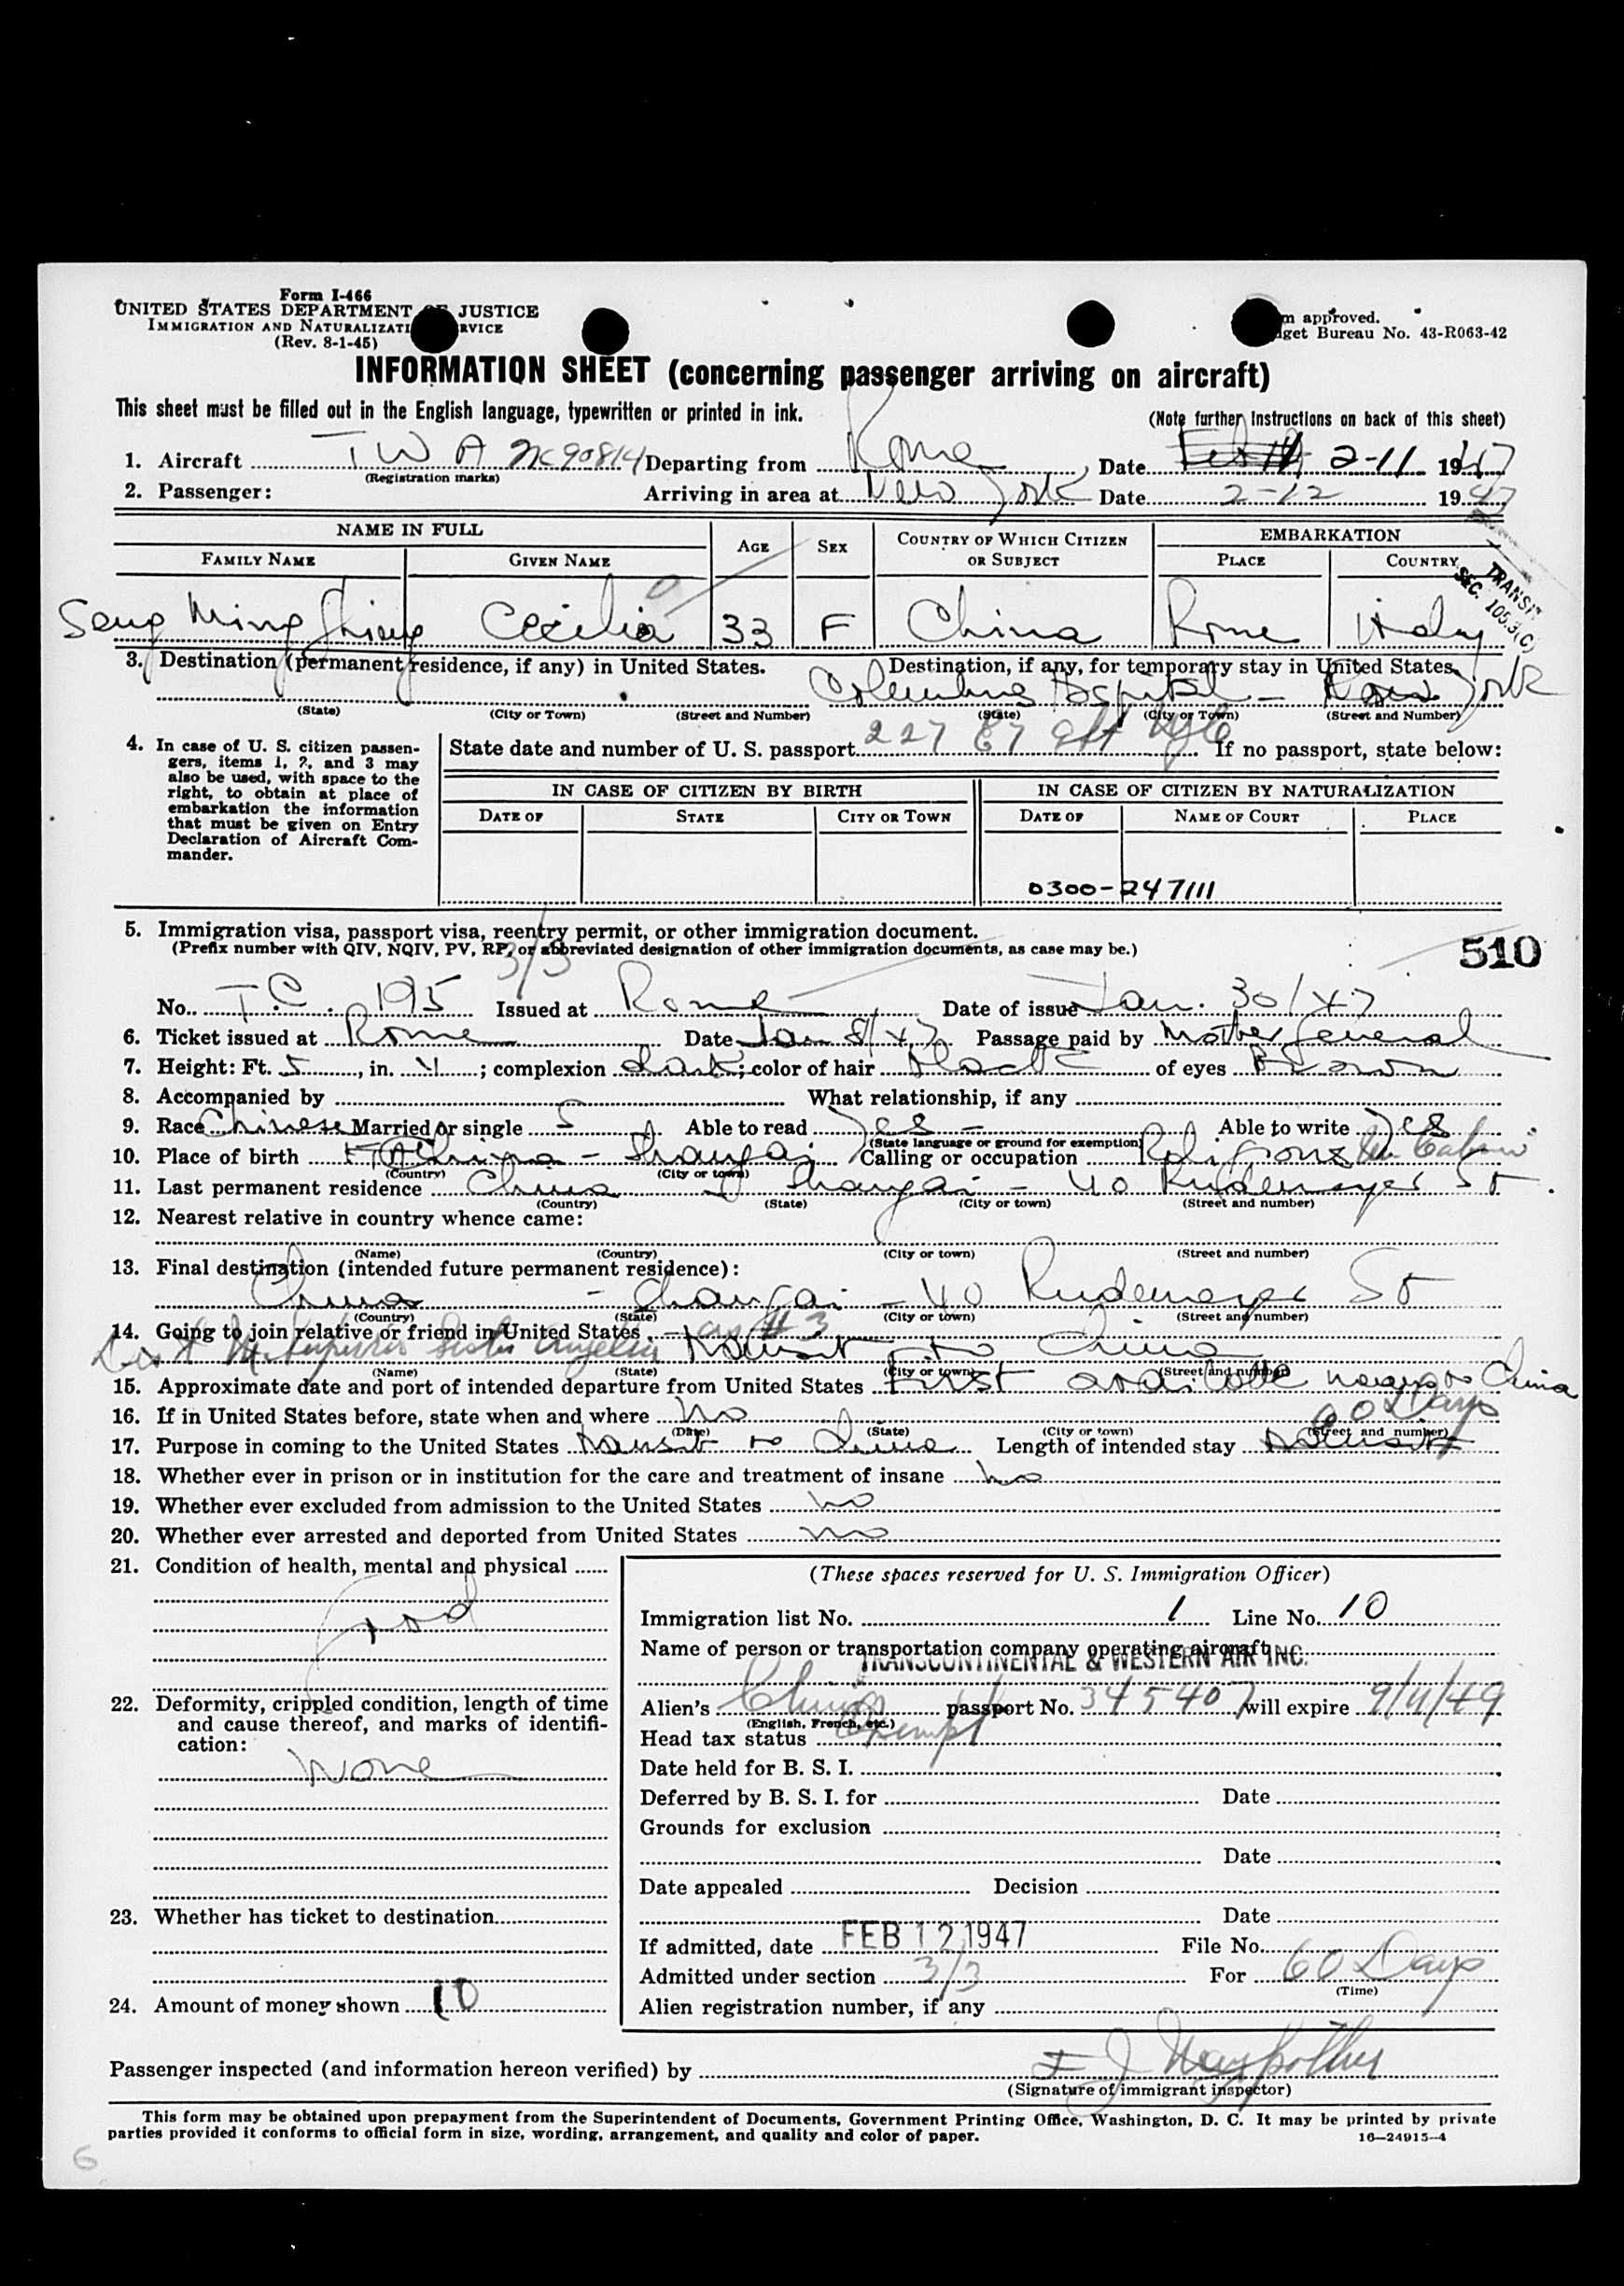 Form I-466
UNITED STATES DEPARTMENT OF JUSTICE
IMMIGRATION AND NATURALIZATI RVICE
(Rev. 8-1-45)
m approved.
get Bureau No. 43-R063-42
INFORMATION SHEET (concerning passenger arriving on aircraft)
This sheet must be filled out in the English language, typewritten or printed in ink.
(Note further instructions on back of this sheet)
1. Aircraft T W A NC90814 Departing from Rome, Date 2-11 1947
(Registration marks)
2. Passenger: Arriving in area at New York Date 2-12 1947
NAME IN FULL AGE SEX COUNTRY OF WHICH CITIZEN OR SUBJECT EMBARKATION
FAMILY NAME GIVEN NAME PLACE COUNTRY
TRANSIT
SEC. 105.3(C)
Seng Ming Cecilia 33 F China Rome Italy
3. Destination (permanent residence, if any) in United States. Destination, if any, for temporary stay in United States.
Columbus Hospital - New York
(State) (City or Town) (Street and Number) (State) (City or Town) (Street and Number)
227 E
4. In case of U. S. citizen passengers, items 1, 2, and 3 may also be used, with space to the right, to obtain at place of embarkation the information that must be given on Entry Declaration of Aircraft Commander.
State date and number of U. S. passport If no passport, state below:
IN CASE OF CITIZEN BY BIRTH IN CASE OF CITIZEN BY NATURALIZATION
DATE OF STATE CITY OR TOWN DATE OF NAME OF COURT PLACE
0300-247111
5. Immigration visa, passport visa, reentry permit, or other immigration document.
(Prefix number with QIV, NQIV, PV, RP, or abbreviated designation of other immigration documents, as case may be.)
3/3
510
No. T.C. 195 Issued at Rome Date of issue Jan. 30/47
6. Ticket issued at Rome Date Jan 8/47 Passage paid by Mother General
7. Height: Ft. 5, in. 4; complexion dark; color of hair Black of eyes Brown
8. Accompanied by What relationship, if any
9. Race Chinese Married or single S Able to read Yes - Able to write Yes
(State language or ground for exemption)
10. Place of birth China - Shangai Calling or occupation Religious
(Country) (City or town)
11. Last permanent residence China Shangai - 40 Rudemeyer St.
(Country) (State) (City or town) (Street and number)
12. Nearest relative in country whence came:
(Name) (Country) (City or town) (Street and number)
13. Final destination (intended future permanent residence):
China - Shangai - 40 Rudemeyer St
(Country) (State) (City or town) (Street and number)
14. Going to join relative or friend in United States as #3
Sister Angelin Transit to China
(Name) (State) (City or town) (Street and number)
15. Approximate date and port of intended departure from United States First to China
16. If in United States before, state when and where No
60 Days
(Date) (State) (City or town) (Street and number)
17. Purpose in coming to the United States Transit to China Length of intended stay Transit
18. Whether ever in prison or in institution for the care and treatment of insane No
19. Whether ever excluded from admission to the United States No
20. Whether ever arrested and deported from United States No
21. Condition of health, mental and physical
Good
22. Deformity, crippled condition, length of time and cause thereof, and marks of identification:
None
23. Whether has ticket to destination
24. Amount of money shown 10
(These spaces reserved for U. S. Immigration Officer)
Immigration list No. 1 Line No. 10
Name of person or transportation company operating aircraft
TRANSCONTINENTAL & WESTERN AIR INC.
Alien's China passport No. 345407 will expire 9/11/49
(English, French, etc.)
Head tax status Exempt
Date held for B. S. I.
Deferred by B. S. I. for Date
Grounds for exclusion
Date
Date appealed Decision
Date
If admitted, date FEB 12 1947 File No.
Admitted under section 3/3 For 60 Days
(Time)
Alien registration number, if any
Passenger inspected (and information hereon verified) by
(Signature of immigrant inspector)
This form may be obtained upon prepayment from the Superintendent of Documents, Government Printing Office, Washington, D. C. It may be printed by private
parties provided it conforms to official form in size, wording, arrangement, and quality and color of paper.
16—24915-4
6